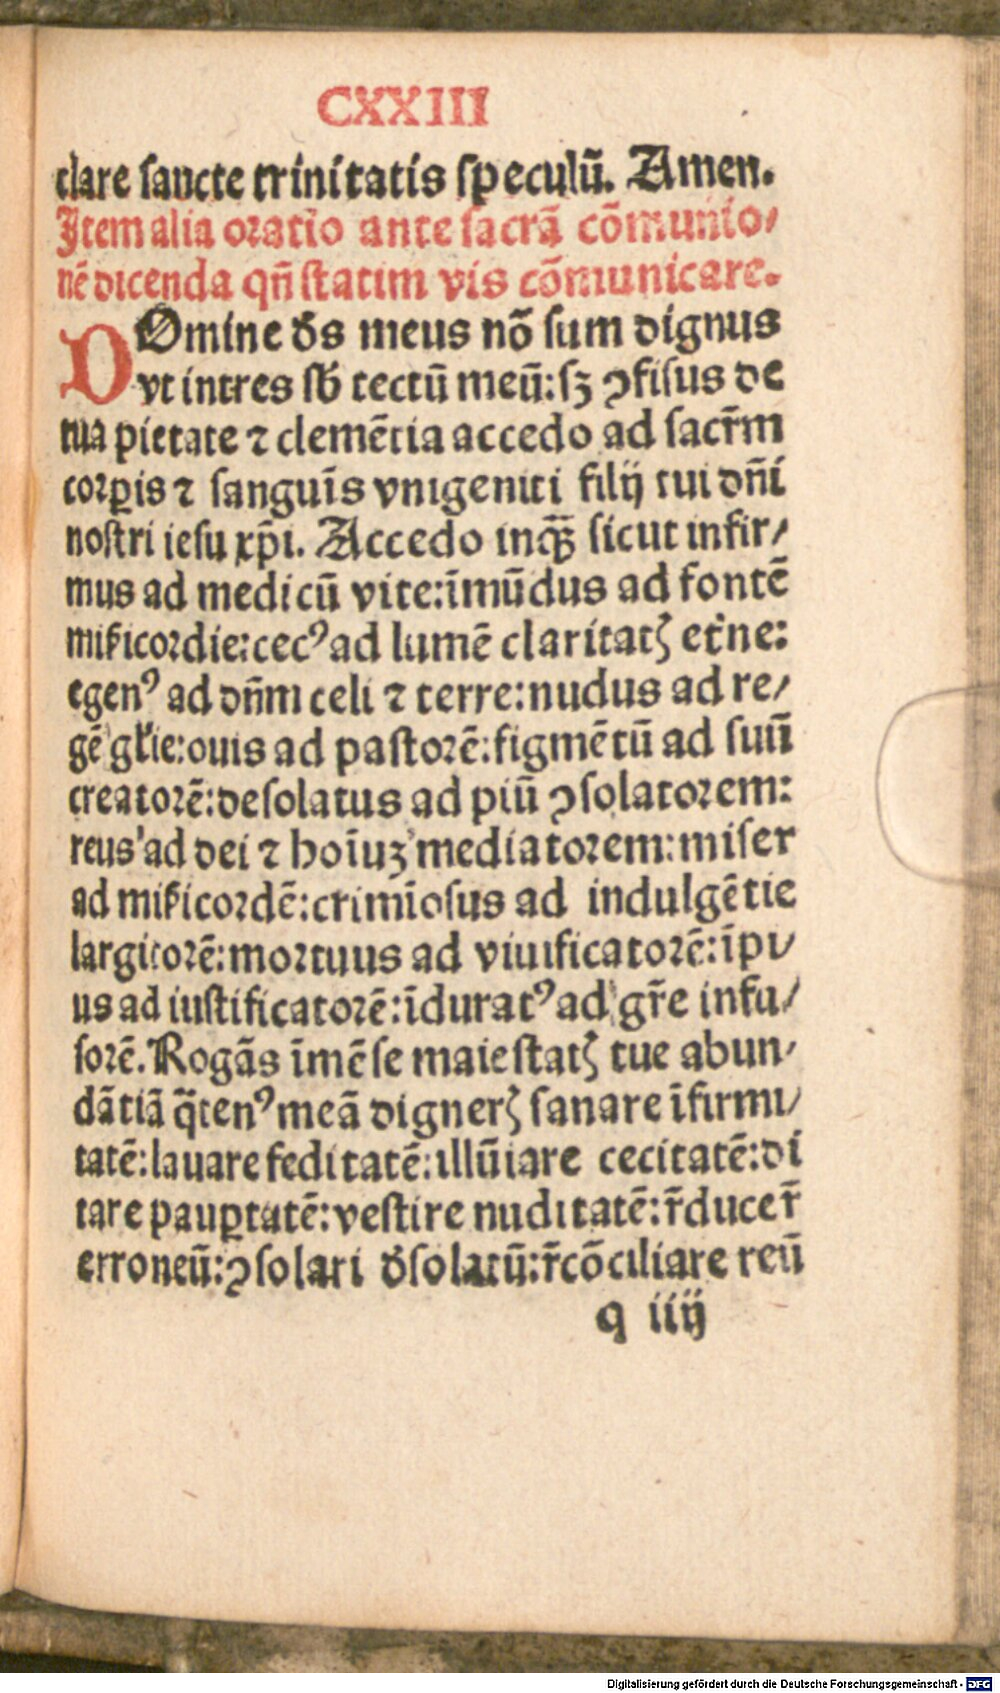 CXXIII
clare sancte trinitatis speculū. Amen.
Item alia oratio ante sacrā cōmunio/
nē dicenda qñ statim vis cōmunicare.
DOmine d̄s meus nō sum dignus
vt intres sb̄ tectū meū: sꝫ ꝯfisus de
tua pietate ⁊ clemētia accedo ad sacr̄m
corꝑis ⁊ sanguīs vnigeniti filij tui dn̄i
nostri iesu xp̄i. Accedo inqᷓꝫ sicut infir/
mus ad medicū vite: īmūdus ad fontē
mīsicordie: cecꝰ ad lumē claritatꝭ et̄ne:
egenꝰ ad dn̄m celi ⁊ terre: nudus ad re/
gē gl̄ie: ouis ad pastorē: figmētū ad suū
creatorē: desolatus ad piū ꝯsolatorem:
reus ad dei ⁊ hoīuꝫ mediatorem: miser
ad mīsicordē: crimīosus ad indulgētie
largitorē: mortuus ad viuificatorē: īpi/
us ad iustificatorē: īduratꝰ ad gr̄e infu/
sorē. Rogās īmēse maiestatꝭ tue abun/
dātiā q̄tenꝰ meā dignerꝭ sanare īfirmi/
tatē: lauare feditatē: illūiare cecitatē: di
tare pauꝑtatē: vestire nuditatē: r̄ducer̄
erroneū: ꝯsolari d̄solatū: r̄cōciliare reū
q iiij
Digitalisierung gefördert durch die Deutsche Forschungsgemeinschaft - DFG